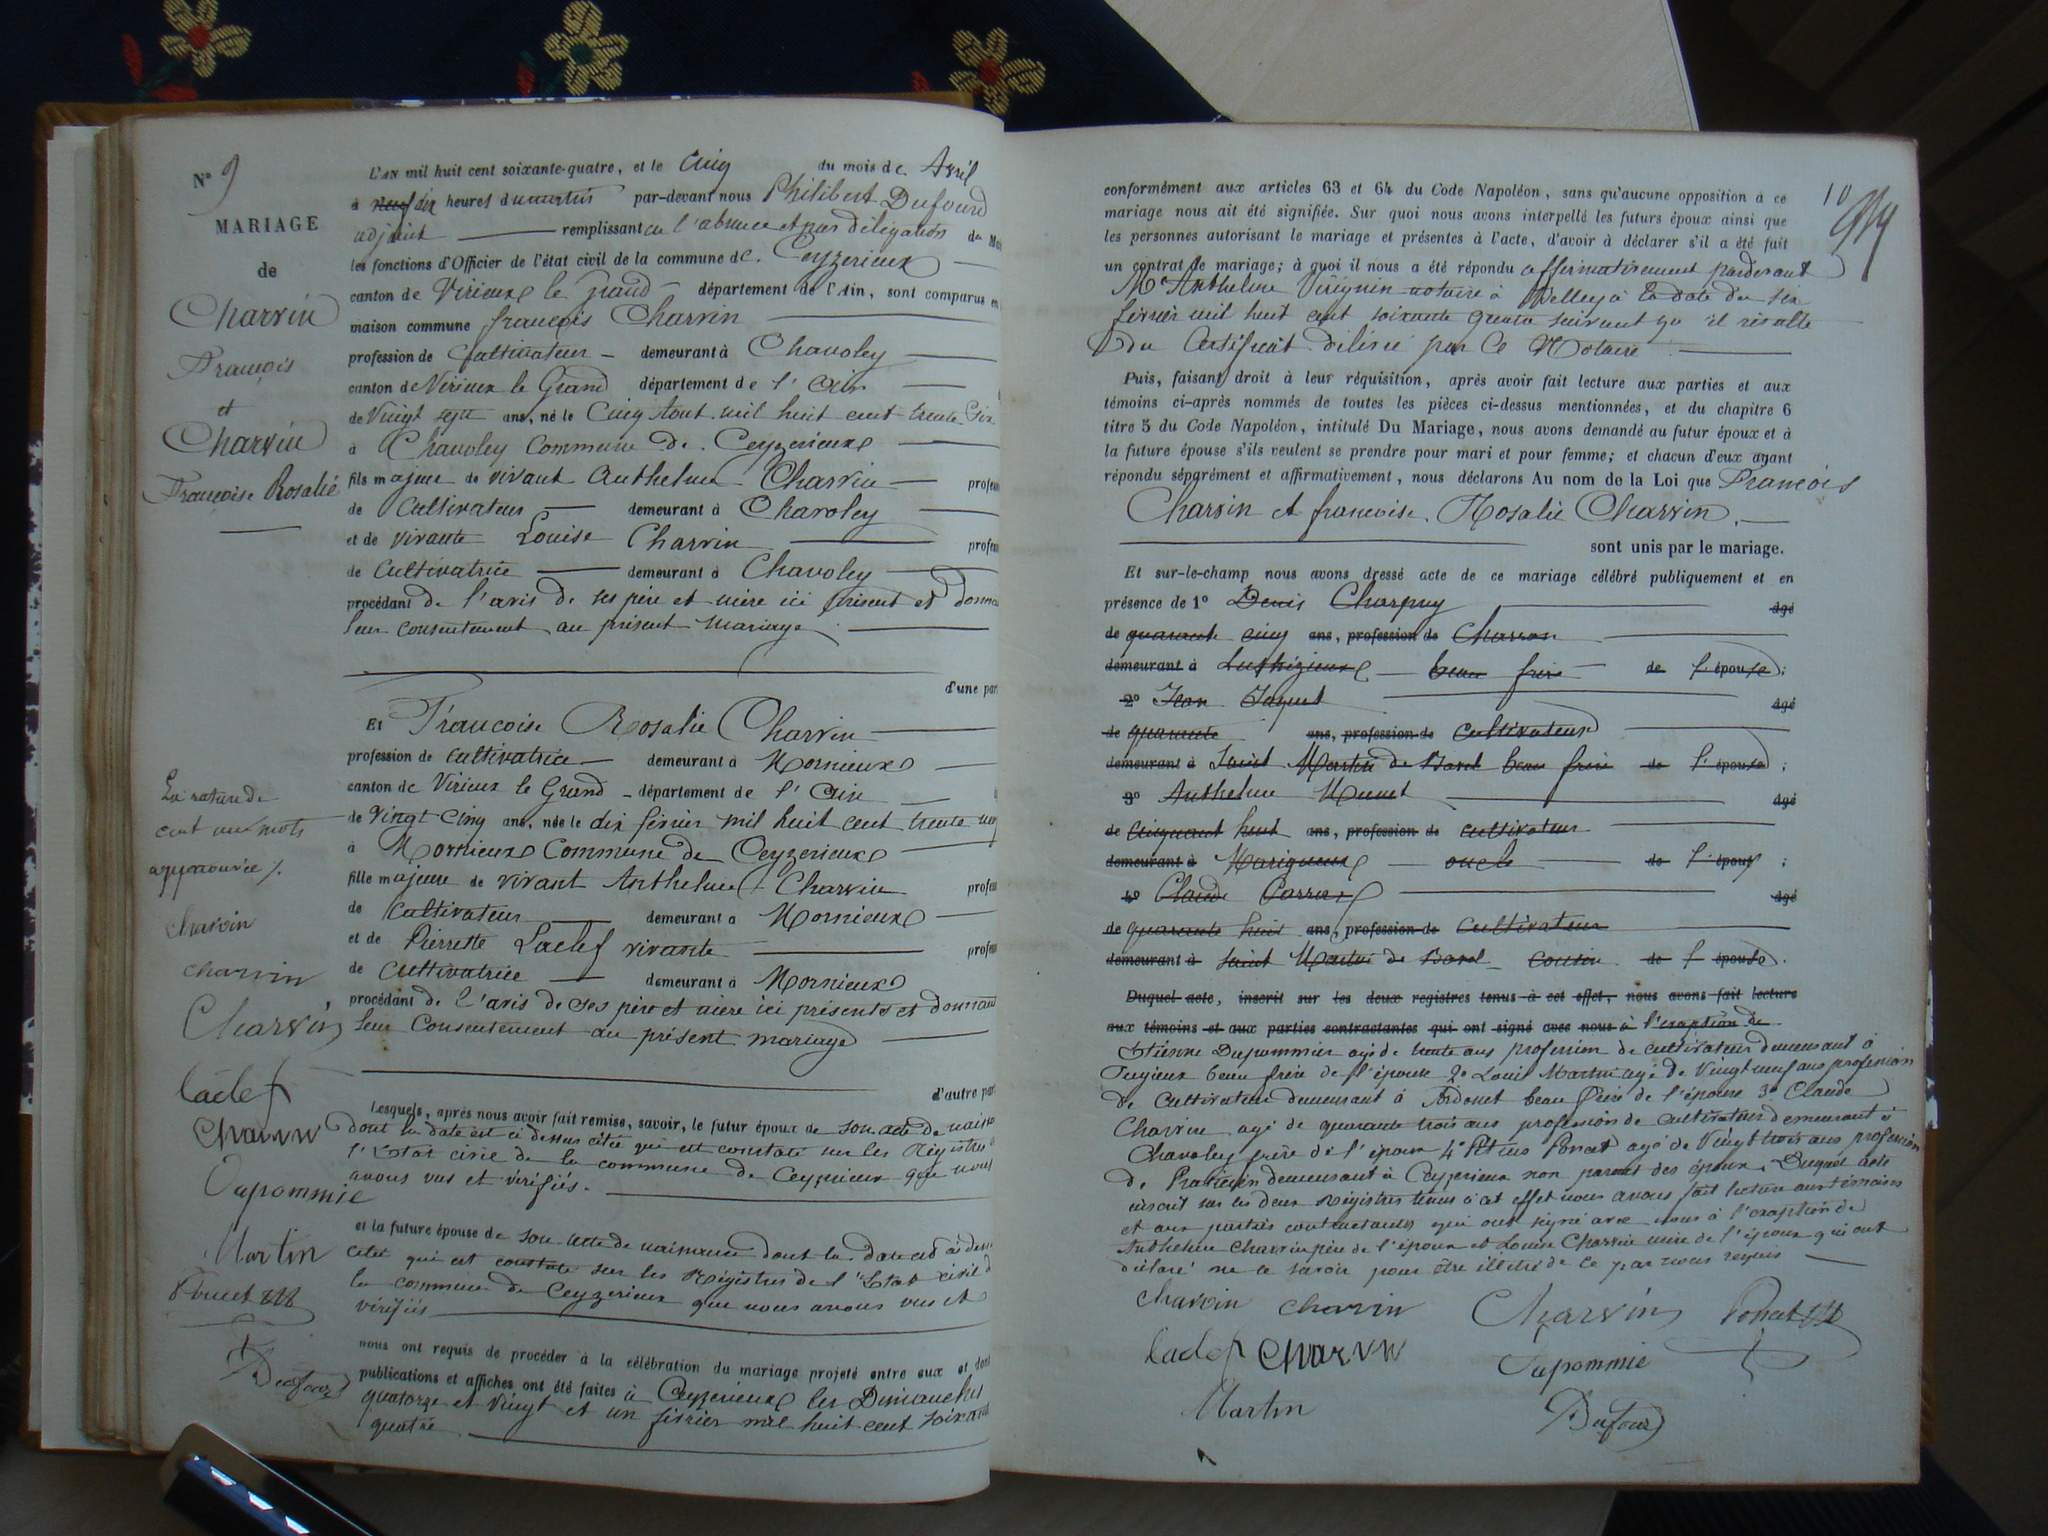 N° 9
MARIAGE
de
Charvin
François
et
Charvin
Françoise Rosalie
La rature de
cent un mots
approuvée /.
charvin
charvin
Charvin
Laclef
Charvin
Dupommie
Martin
Poncet
Dufourd
L'AN mil huit cent soixante-quatre, et le Cinq du mois de Avril
à neuf dix heures du matin par-devant nous Philibert Dufourd
adjoint remplissant en l'absence et par délégation du Mai
les fonctions d'Officier de l'état civil de la commune de Ceyzerieux
canton de Virieux le Grand département de l'Ain, sont comparus en
maison commune françois Charvin
profession de Cultivateur demeurant à Chavoley
canton de Virieux le Grand département de l'Ain
de Vingt sept ans, né le Cinq Aout mil huit cent trente Six
à Chavoley Commune de Ceyzerieux
fils majeur de vivant Anthelme Charvin profess
de Cultivateur demeurant à Chavoley
et de vivante Louise Charvin profess
de Cultivatrice demeurant à Chavoley
procédant de l'avis de ses père et mère ici présent et donna
leur consentement au présent Mariage
d'une part
Et Francoise Rosalie Charvin
profession de cultivatrice demeurant à Mornieux
canton de Virieux le Grand département de l'Ain
de Vingt Cinq ans, née le dix février mil huit cent trente neuf
à Mornieux Commune de Ceyzerieux
fille majeure de vivant Anthelme Charvin profess
de Cultivateur demeurant à Mornieux
et de Pierrette Laclef vivante profess
de Cultivatrice demeurant à Mornieux
procédant de l'avis de ses père et mère ici présents et donnant
leur Consentement au présent mariage
d'autre part
Lesquels, après nous avoir fait remise, savoir, le futur époux de son acte de naiss
dont la date est ci dessus citée qui est constaté sur les Registres
l'Etat civil de la commune de Ceyzerieux que nous
avons vus et vérifiés.
et la future épouse de son acte de naissance dont la date est ci dess
citée qui est constaté sur les Régistres de l'Etat civil d
la commune de Ceyzerieux que nous avons vus et
vérifiés
nous ont requis de procéder à la célébration du mariage projeté entre eux et dont
publications et affiches ont été faites à Ceyzerieux les Dimanches
quatorze et Vingt et un février mil huit cent soixante
quatre
10
conformément aux articles 63 et 64 du Code Napoléon, sans qu'aucune opposition à ce
mariage nous ait été signifiée. Sur quoi nous avons interpellé les futurs époux ainsi que
les personnes autorisant le mariage et présentes à l'acte, d'avoir à déclarer s'il a été fait
un contrat de mariage; à quoi il nous a été répondu affirmativement pardevant
Me Anthelme notaire à Belley à la date du six
février mil huit cent soixante quatre suivant qu'il résulte
du Certificat délivré par Ce Notaire
Puis, faisant droit à leur réquisition, après avoir fait lecture aux parties et aux
témoins ci-après nommés de toutes les pièces ci-dessus mentionnées, et du chapitre 6
titre 5 du Code Napoléon, intitulé Du Mariage, nous avons demandé au futur époux et à
la future épouse s'ils veulent se prendre pour mari et pour femme; et chacun d'eux ayant
répondu séparément et affirmativement, nous déclarons Au nom de la Loi que François
Charvin et françoise Rosalie Charvin
sont unis par le mariage.
Et sur-le-champ nous avons dressé acte de ce mariage célébré publiquement et en
présence de 1° Denis Charpuy âgé
de quarante cinq ans, profession de Charron
demeurant à beau frère de l'épouse;
2° Jean Jaquet âgé
de quarante ans, profession de cultivateur
demeurant à Saint Martin de Bavel beau frère de l'épouse;
3° Anthelme Munet âgé
de Cinquant huit ans, profession de cultivateur
demeurant à Marignieux oncle de l'époux;
4° Claude Carraz âgé
de quarante huit ans, profession de Cultivateur
demeurant à Saint Martin de Bavel cousin de l'épouse.
Duquel acte, inscrit sur les deux registres tenus à cet effet, nous avons fait lecture
aux témoins et aux parties contractantes qui ont signé avec nous à l'exeption de
Etienne Dupommier agé de trente ans profession de cultivateur demeurant à
beau frère de l'épouse 2° Louis Martin agé de Vingt neuf ans profession
de Cultivateur demeurant à Ardonet beau frère de l'épouse 3° Claude
Charvin agé de quarante trois ans profession de Cultivateur demeurant à
Chavoley frère de l'époux 4° Poncet agé de Vingt trois ans profession
de Praticien demeurant à Ceyzerieux non parent des époux. Duquel acte
inscrit sur les deux Régistres tenus à cet effet nous avons fait lecture aux témoins
et aux parties contractantes qui ont signé avec nous à l'exeption de
Anthelme Charvin père de l'époux et Louise Charvin mère de l'époux qui ont
déclaré ne le savoir pour être illétré de ce par nous requis
charvin charvin Charvin Poncet
Laclef Charvin Dupommie
Martin Dufourd